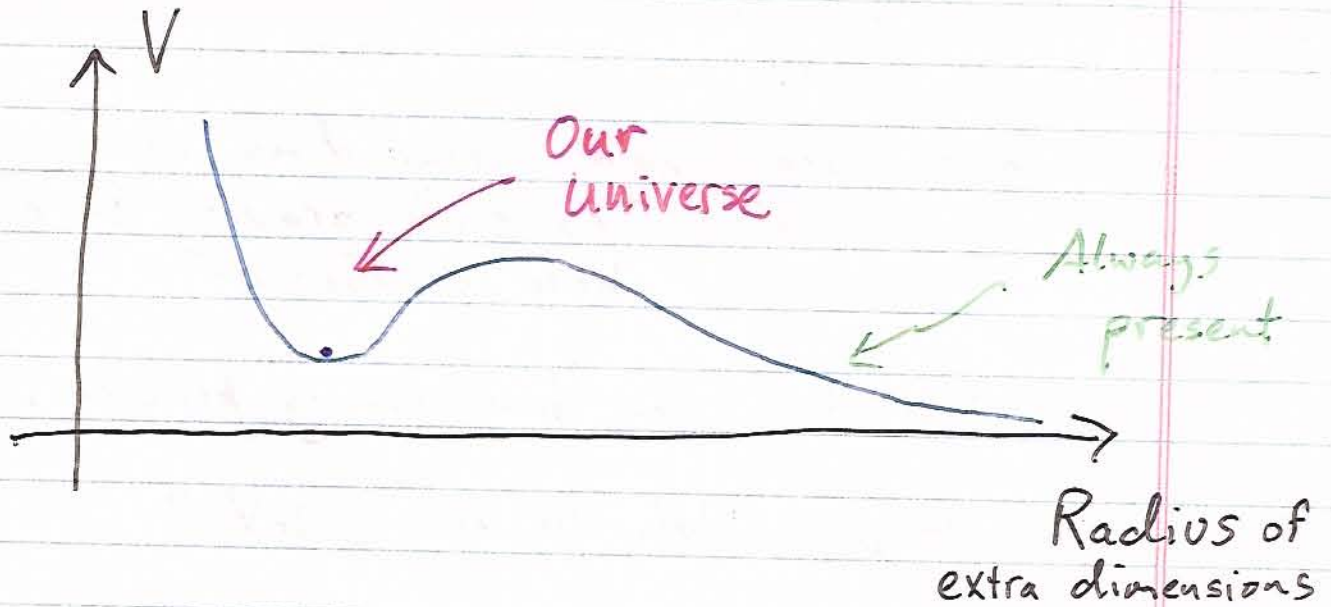 V
Our
universe
Always
present
Radius of
extra dimensions